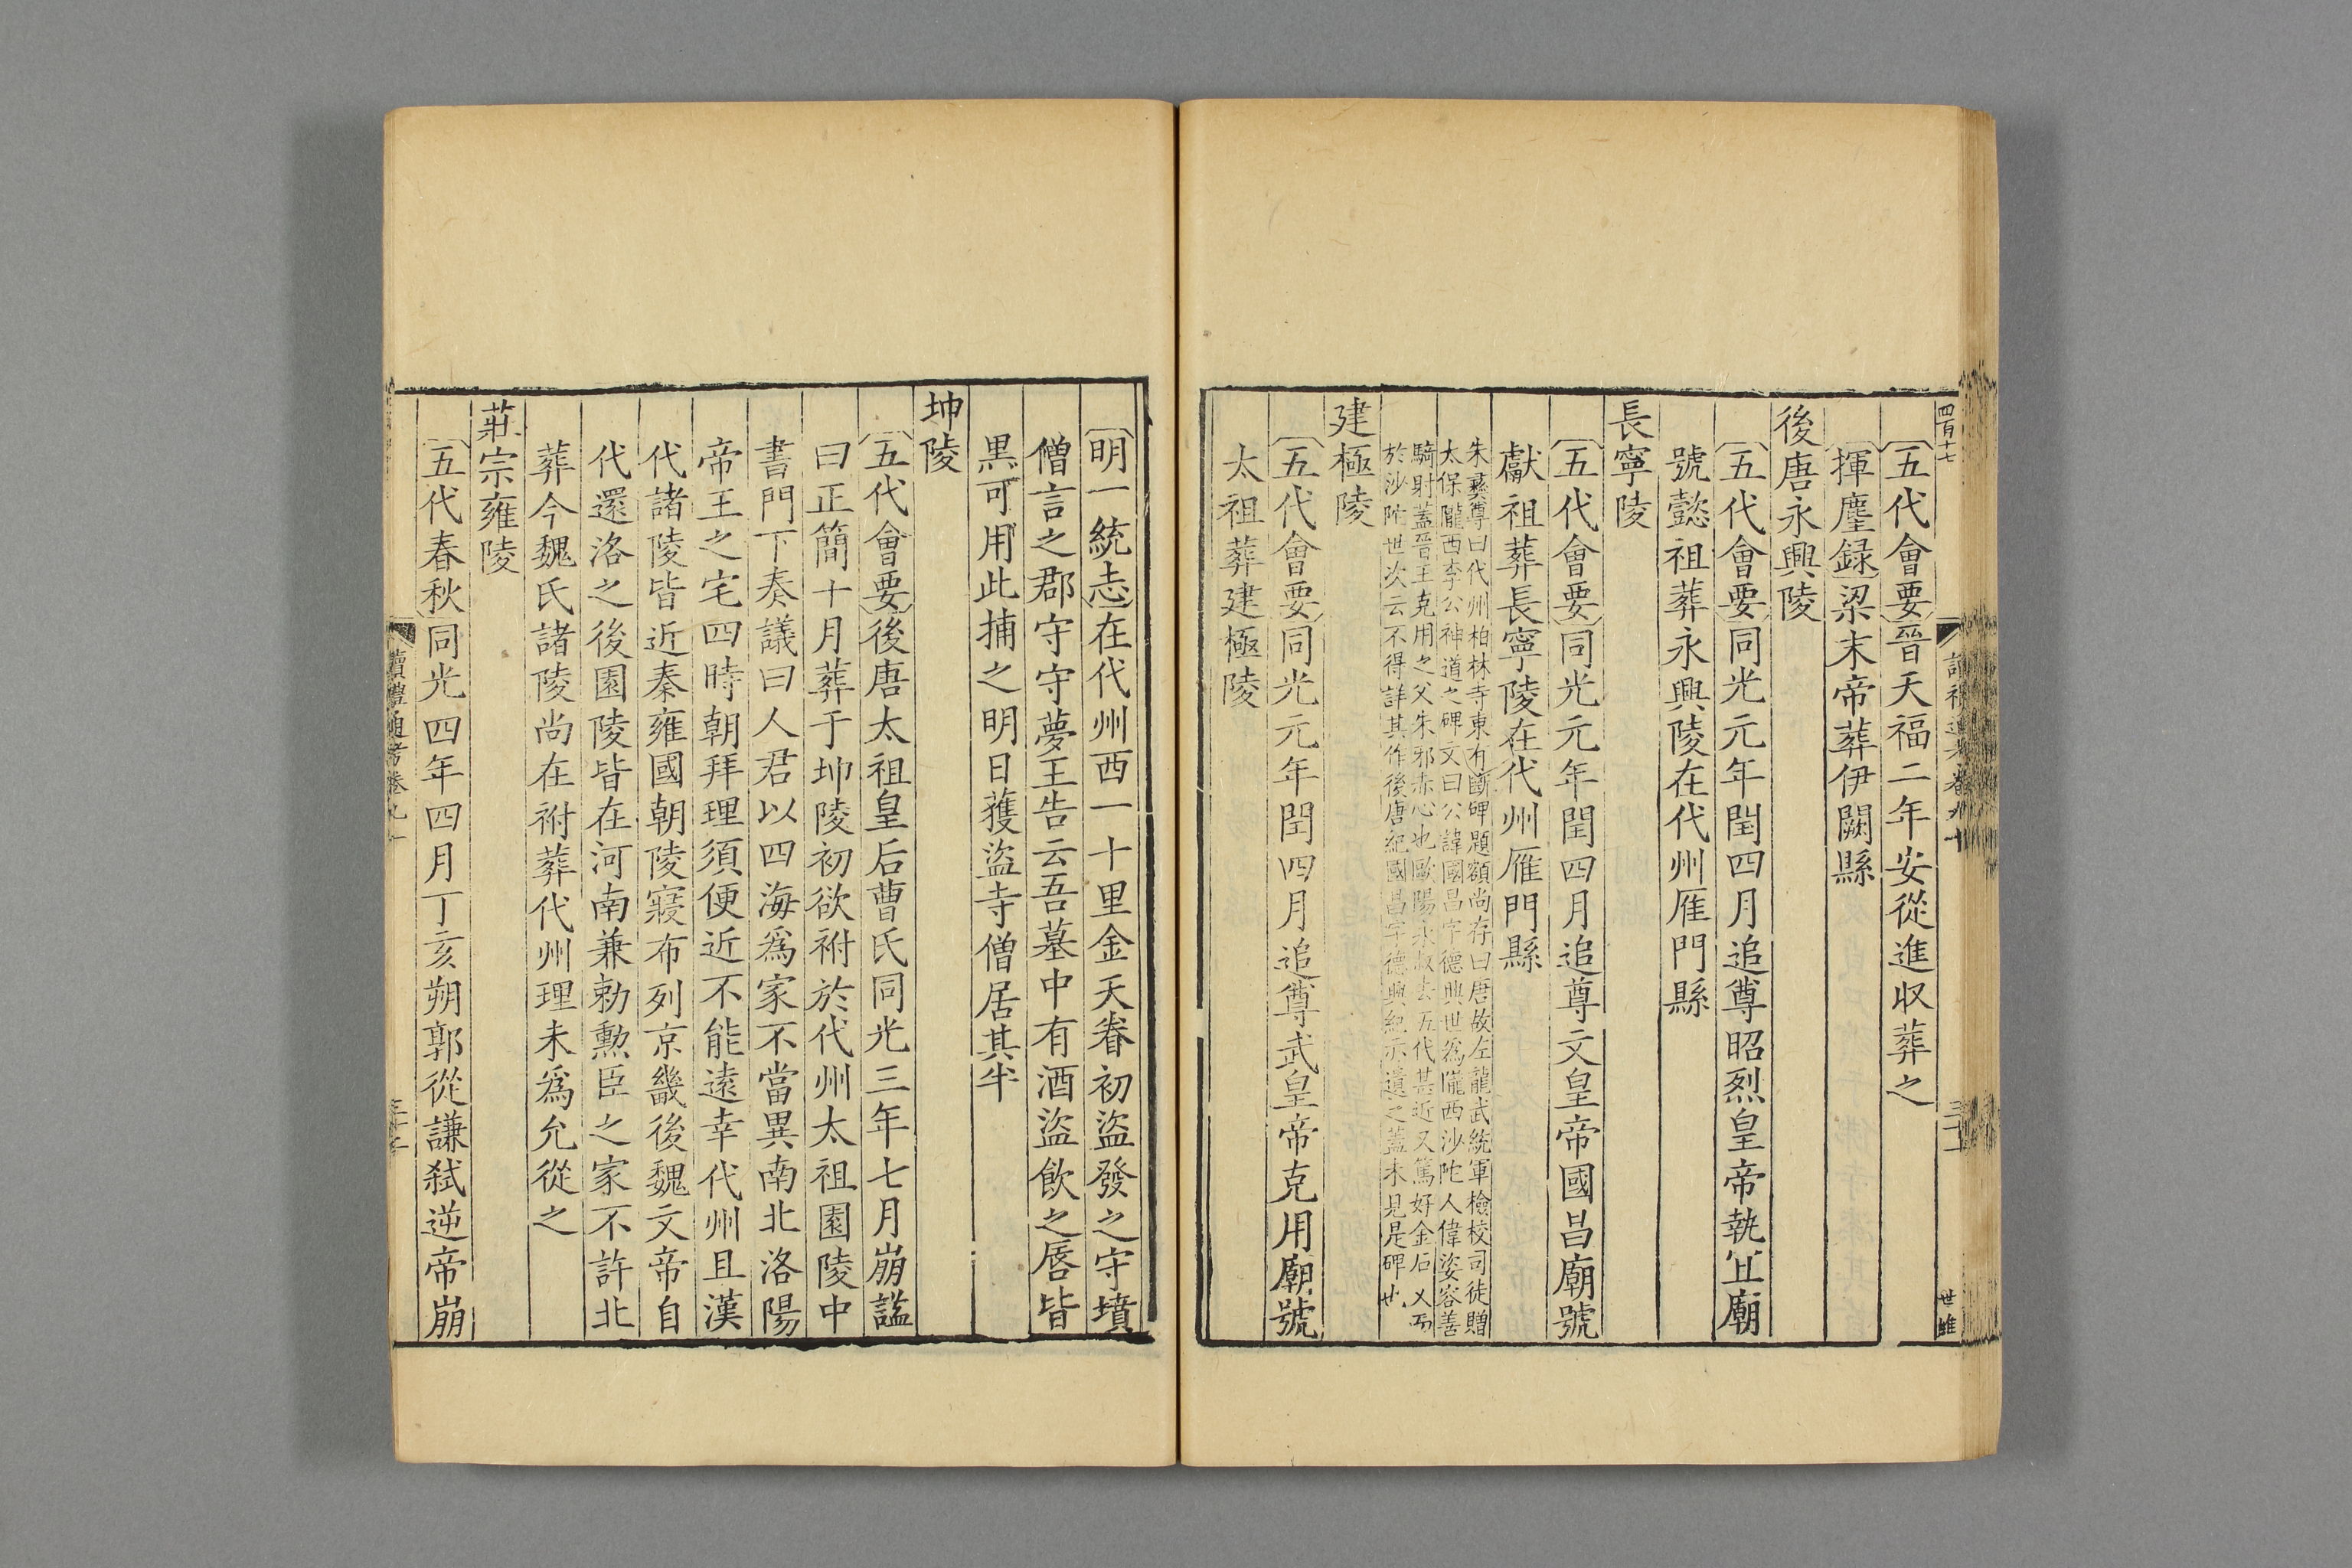 四百十七
讀禮通考卷九十
世雄
〔五代會要〕晉天福二年安從進収葬之
〔揮塵録〕梁末帝葬伊闕縣
後唐永興陵
〔五代會要〕同光元年閏四月追尊昭烈皇帝執宜廟
號懿祖葬永興陵在代州雁門縣
長寧陵
〔五代會要〕同光元年閏四月追尊文皇帝國昌廟號
獻祖葬長寧陵在代州雁門縣
朱彝尊曰代州柏林寺東有斷碑題額尚存曰唐故左龍武統軍檢校司徒贈
太保隴西李公神道之碑文曰公諱國昌字德興世爲隴西沙陀人偉姿容善
騎射蓋晉王克用之父朱邪赤心也歐陽永叔去五代甚近又篤好金石文而
於沙陀世次云不得詳其作後唐紀國昌字德興紀亦遺之蓋未見是碑也
建極陵
〔五代會要〕同光元年閏四月追尊武皇帝克用廟號
太祖葬建極陵
〔明一統志〕在代州西一十里金天眷初盜發之守墳
僧言之郡守守夢王告云吾墓中有酒盜飲之唇皆
黒可用此捕之明日獲盜寺僧居其半
坤陵
〔五代會要〕後唐太祖皇后曹氏同光三年七月崩謚
曰正簡十月葬于坤陵初欲祔於代州太祖園陵中
書門下奏議曰人君以四海爲家不當異南北洛陽
帝王之宅四時朝拜理須便近不能遠幸代州且漢
代諸陵皆近秦雍國朝陵寢布列京畿後魏文帝自
代還洛之後園陵皆在河南兼勅勲臣之家不許北
葬今魏氏諸陵尚在祔葬代州理未爲允從之
莊宗雍陵
〔五代春秋〕同光四年四月丁亥朔郭從謙弑逆帝崩
讀禮通考卷九十